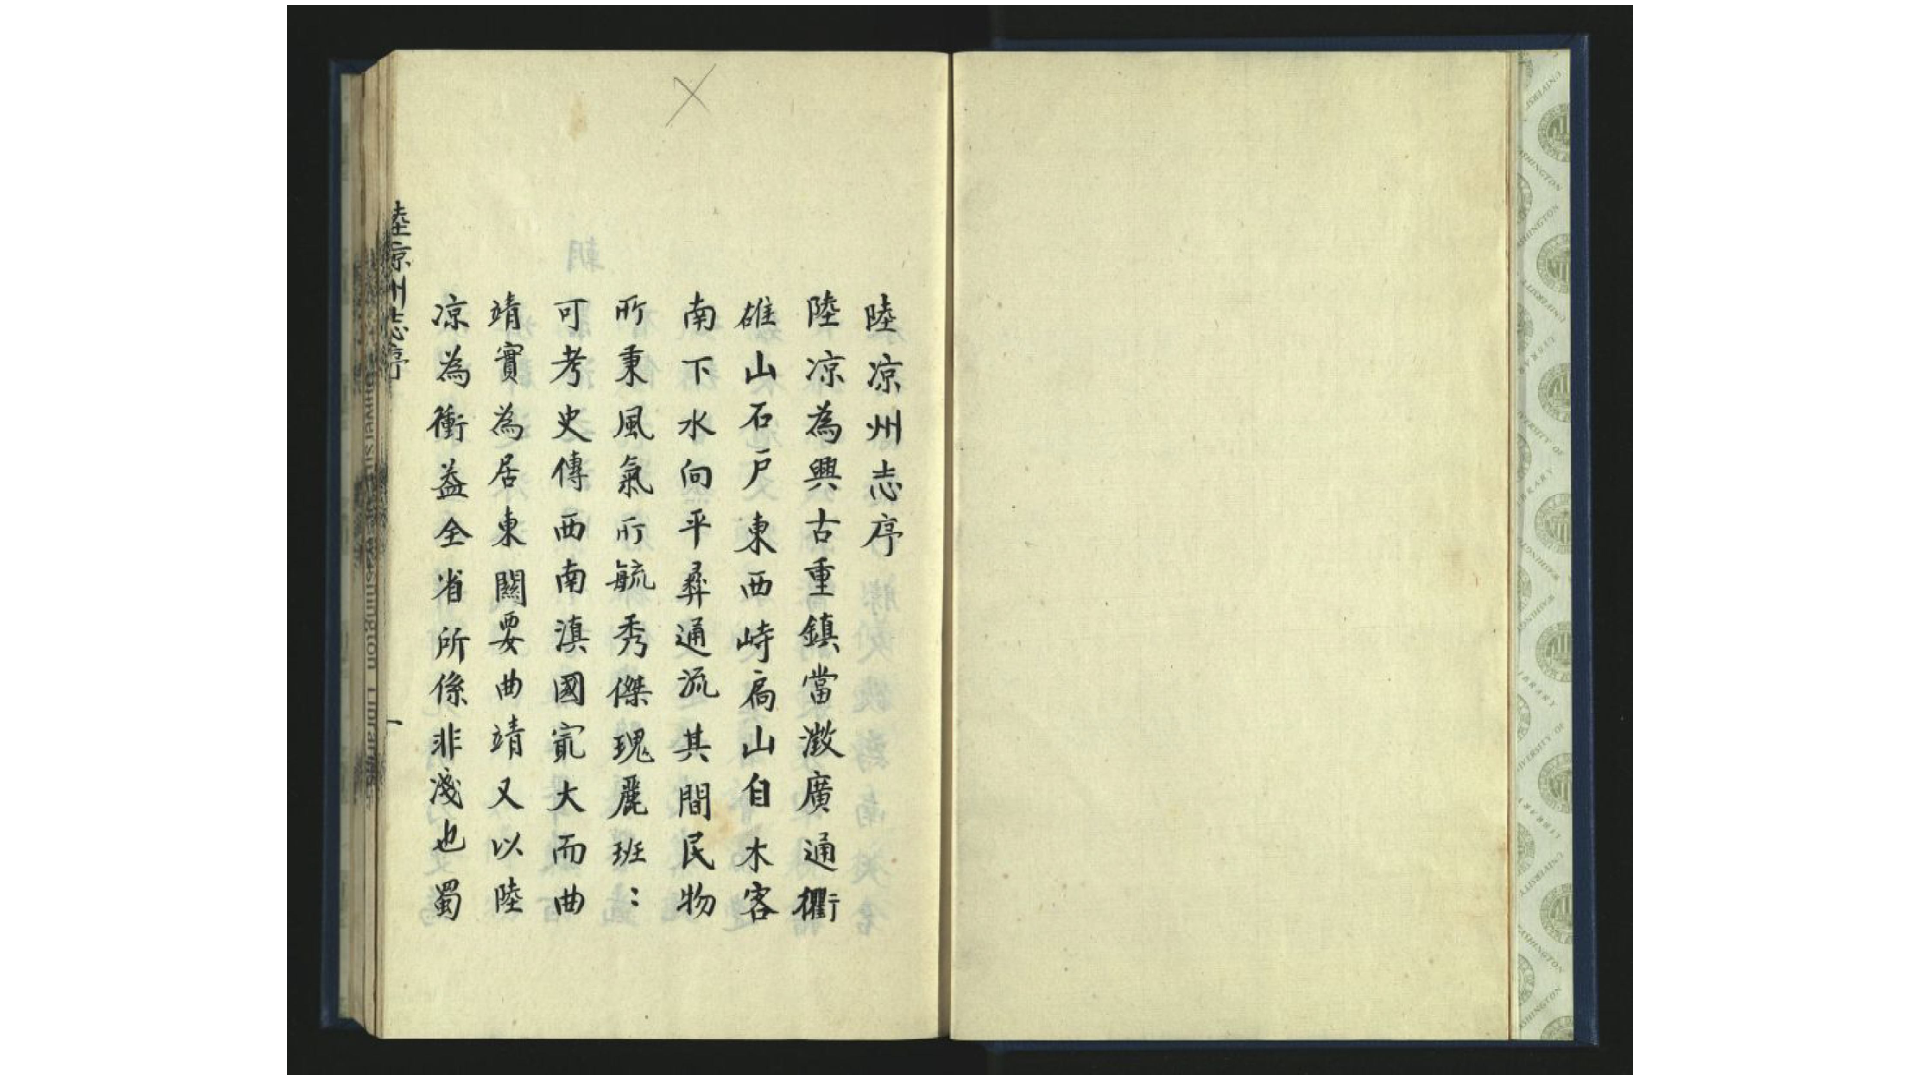 陸凉州志序
陸凉為興古重鎮當激廣通衢
碓山石户東西峙扃山自木客
南下水向平彞通流其間民物
所秉風氣所毓秀傑瑰麗班：
可考史傳西南滇國㝡大而曲
靖實為居東闗要曲靖又以陸
凉為衝益全省所係非淺也蜀
陸凉州志序
一